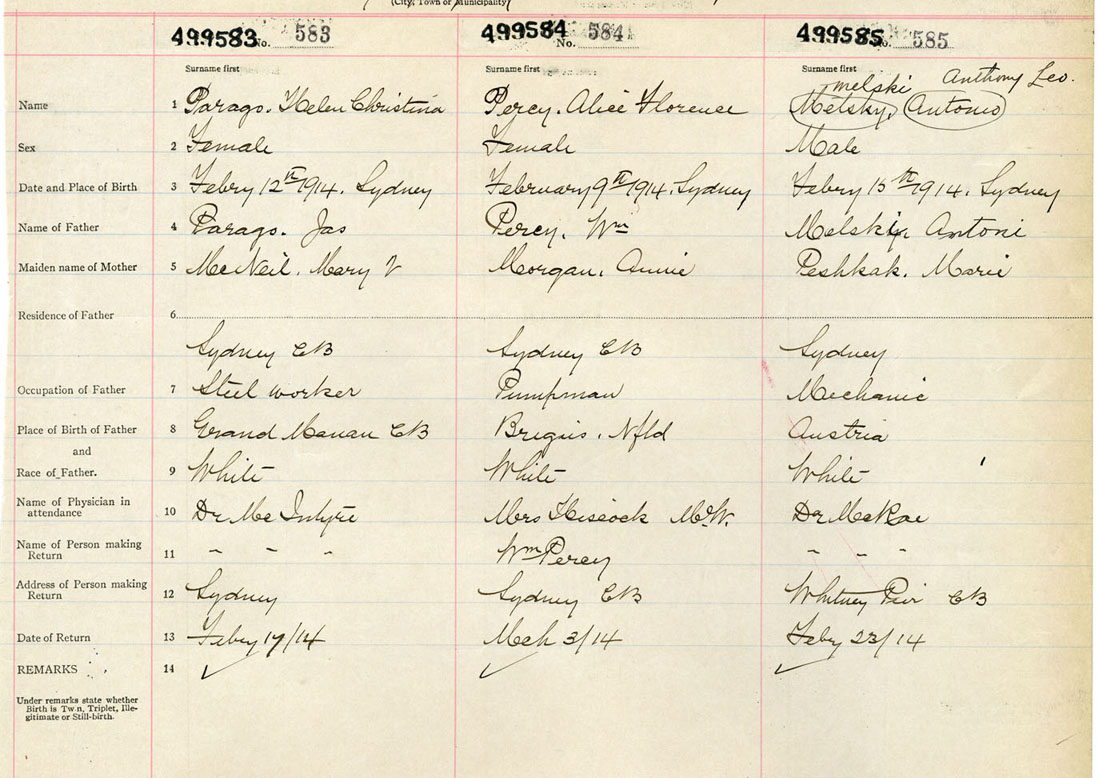 (City, Town or Municipality)
499583 No. 583 499584 No. 584 499585 No. 585
Surname first Surname first Surname first
melski Anthony Leo.
Name 1 Parago. Helen Christina Percy. Alice Florence Melsky, Antonio
Sex 2 Female Female Male
Date and Place of Birth 3 Febry 12th 1914. Sydney February 9th 1914. Sydney Febry 15th 1914. Sydney
Name of Father 4 Parago. Jas Percy. Wm Melski Antoni
Maiden name of Mother 5 McNeil. Mary V Morgan. Annie Peshkak. Marie
Residence of Father 6
Sydney CB Sydney CB Sydney
Occupation of Father 7 Steel worker Pumpman Mechanic
Place of Birth of Father 8 Grand Manan CB Brigus. Nfld Austria
and
Race of Father. 9 White White White
Name of Physician in
attendance 10 Dr McIntyre Mrs Hiscock M.W. Dr McRae
Name of Person making
Return 11 " " " Wm Percy " " "
Address of Person making
Return 12 Sydney Sydney CB Whitney Pier CB
Date of Return 13 Feby 17/14 Mch 3/14 Feby 23/14
REMARKS 14 ✓ ✓ ✓
Under remarks state whether
Birth is Twn, Triplet, Ille-
gitimate or Still-birth.